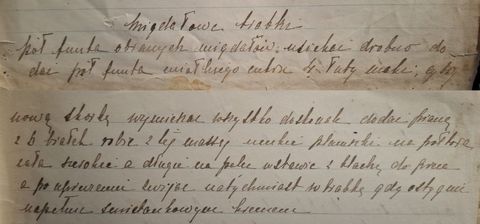 Migdałowe trąbki
pół funta obranych migdałów, usiekać drobno do
dać pół funta miałkiego cukru 4 łuty mąki,
nową skórkę wymieszać wszystko doskonale dodać pianę
z 6 białek robić z tej massy cienkie plamiski na półtora
cala szerokie a długie na palec wstawić z blachą do pieca
a po upieczeniu zwijać natychmiast w trąbkę gdy ostygnie
napełnić śmietankowym kremem